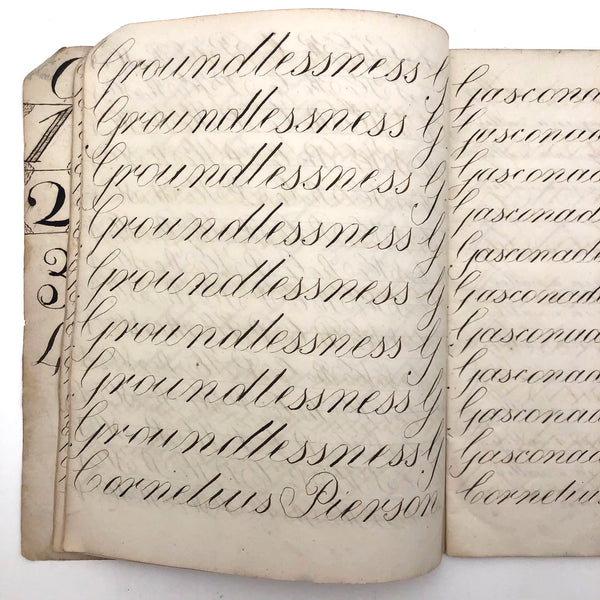 1
2
3
4
Groundlessness G
Groundlessness G
Groundlessness G
Groundlessness G
Groundlessness G
Groundlessness G
Groundlessness G
Groundlessness G
Cornelius Pierson
Gasconad
Gasconad
Gasconad
Gasconad
Gasconad
Gasconad
Gasconad
Gasconad
Gasconad
Gasconad
Cornelius